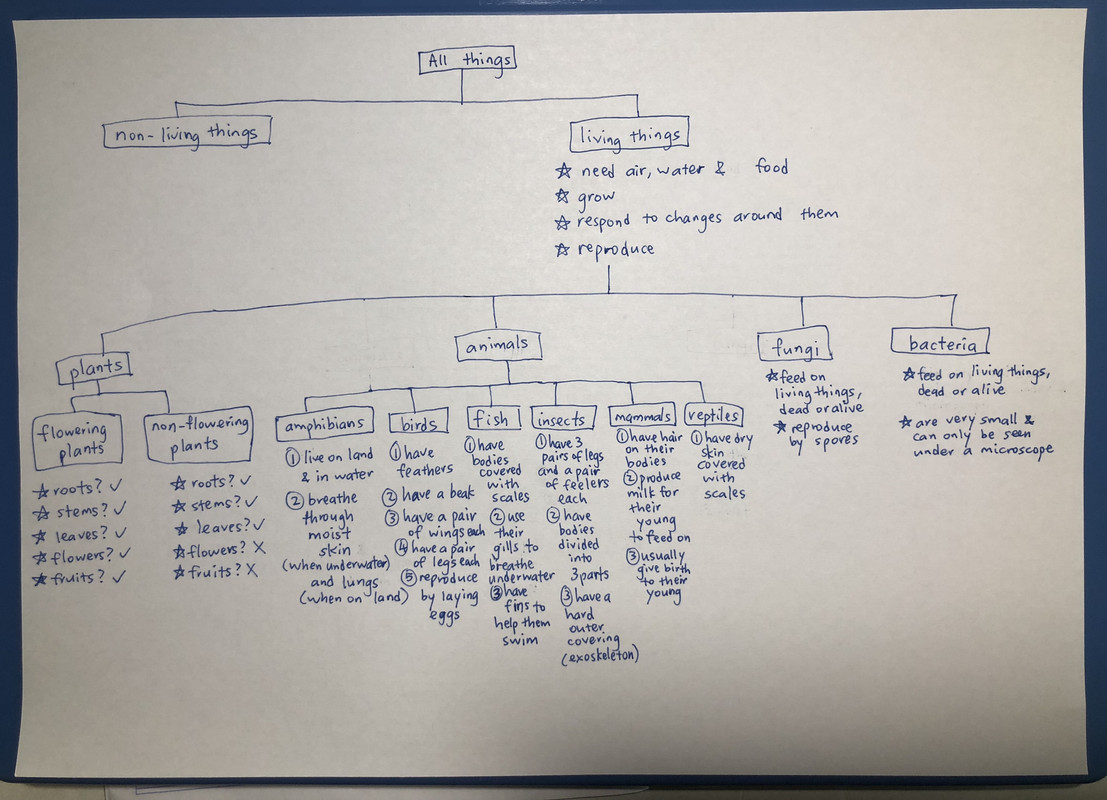 All things
non-living things
living things
☆ need air, water & food
☆ grow
☆ respond to changes around them
☆ reproduce
plants
animals
fungi
☆ feed on
living things,
dead or alive
☆ reproduce
by spores
bacteria
☆ feed on living things,
dead or alive
☆ are very small &
can only be seen
under a microscope
flowering
plants
☆ roots? ✓
☆ stems? ✓
☆ leaves? ✓
☆ flowers? ✓
☆ fruits? ✓
non-flowering
plants
☆ roots? ✓
☆ stems? ✓
☆ leaves? ✓
☆ flowers? X
☆ fruits? X
amphibians
① live on land
& in water
② breathe
through
moist
skin
(when underwater)
and lungs
(when on land)
birds
① have
feathers
② have a beak
③ have a pair
of wings each
④ have a pair
of legs each
⑤ reproduce
by laying
eggs
fish
① have
bodies
covered
with
scales
② use
their
gills to
breathe
underwater
③ have
fins to
help them
swim
insects
① have 3
pairs of legs
and a pair
of feelers
each
② have
bodies
divided
into
3 parts
③ have a
hard
outer
covering
(exoskeleton)
mammals
① have hair
on their
bodies
② produce
milk for
their
young
to feed on
③ usually
give birth
to their
young
reptiles
① have dry
skin
covered
with
scales